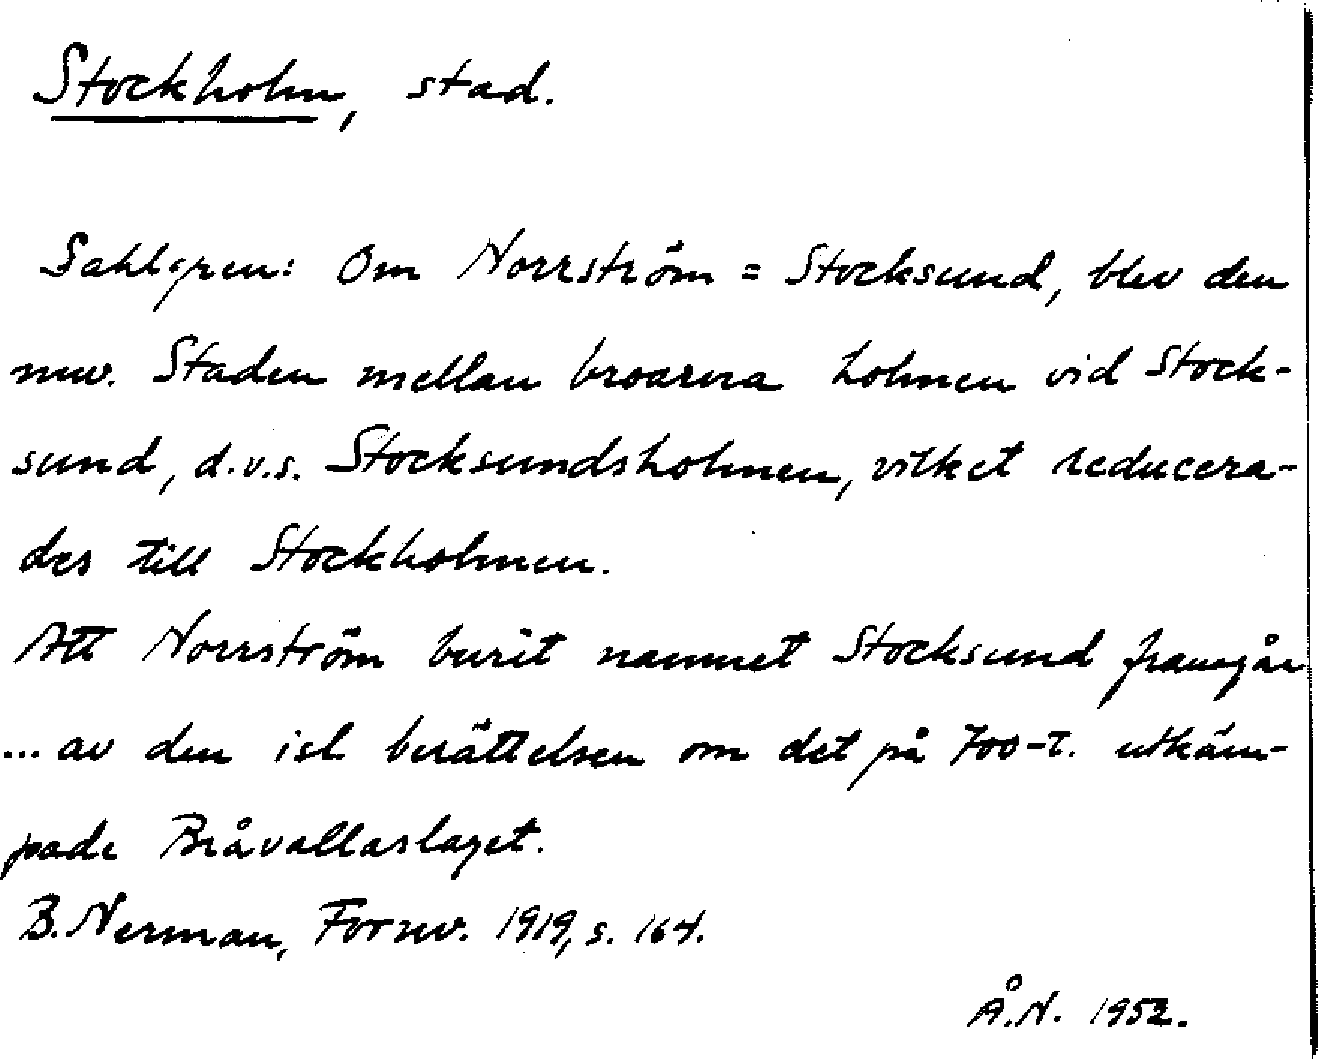 Stockholm, stad.
Sahlgren: Om Norrström = Stocksund, blev den
nuv. Staden mellan broarna holmen vid Stock-
sund, d.v.s. Stocksundsholmen, vilket reducera-
des till Stockholmen.
Att Norrström burit namnet Stocksund framgår
... av den isl berättelsen om det på 700-t. utkäm-
pade Bråvallaslaget.
B. Nerman, Fornv. 1919, s. 164.
Å.N. 1952.